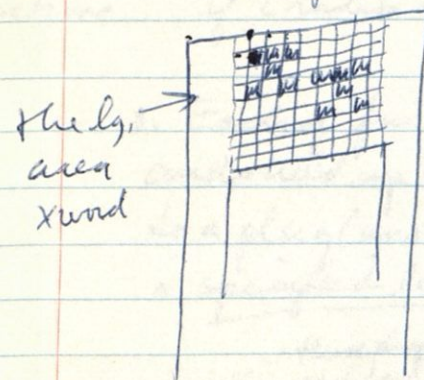 the lg.
area
xword